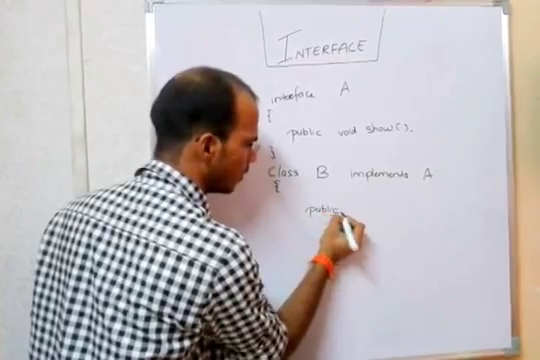 INTERFACE
interface A
{
public void show();
}
Class B implements A
{
public